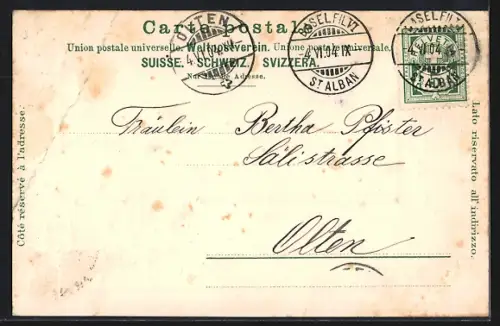 Carte postale.
Union postale universelle. Weltpostverein. Unione postale universale.
SUISSE. SCHWEIZ. SVIZZERA.
Nur für die Adresse.
OLTEN
BASEL FIL. VI
4. VI. 04. IX
ST. ALBAN
BASEL FIL. VI
4. VI. 04
ST. ALBAN
HELVETIA
Côté réservé à l'adresse.
Lato riservato all'indirizzo.
Fräulein Bertha Pfister
Sälistrasse
Olten